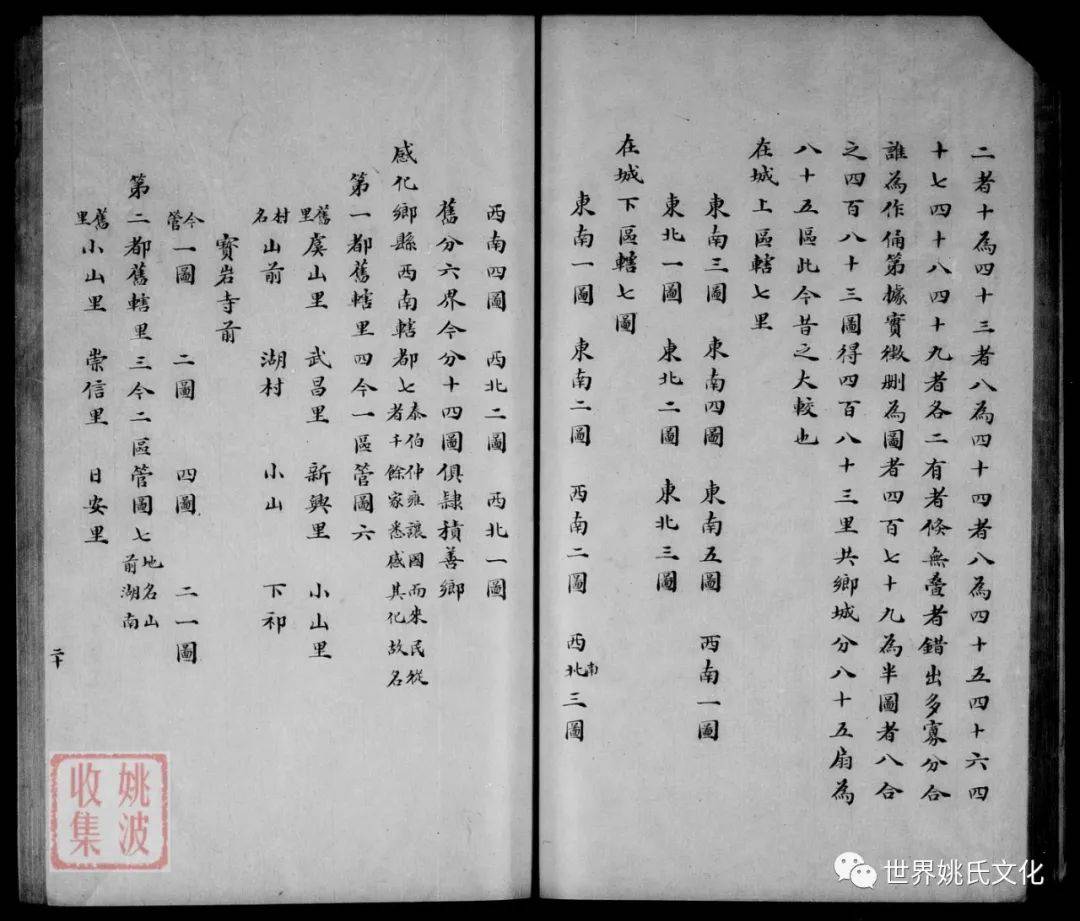 二者十為四十三者八為四十四者八為四十五四十六四
十七四十八四十九者各二有者倐無疊者錯出多寡分合
誰為作俑第據實徴删為圖者四百七十九為半圖者八合
之四百八十三圖得四百八十三里共鄉城分八十五扇為
八十五區此今昔之大較也
在城上區轄七里
東南三圖 東南四圖 東南五圖 西南一圖
東北一圖 東北二圖 東北三圖
在城下區轄七圖
東南一圖 東南二圖 西南二圖 西北南三圖
西南四圖 西北二圖 西北一圖
舊分六界今分十四圖俱隸積善鄉
感化鄉縣西南轄都七泰伯仲雍讓國而來民從
者千餘家悉感其化故名
第一都舊轄里四今一區管圖六
舊里 虞山里 武昌里 新興里 小山里
村名 山前 湖村 小山 下祁
寶岩寺前
今管 一圖 二圖 四圖 二一圖
第二都舊轄里三今二區管圖七地名山
前湖南
舊里 小山里 崇信里 日安里
二十
姚波
收集
世界姚氏文化